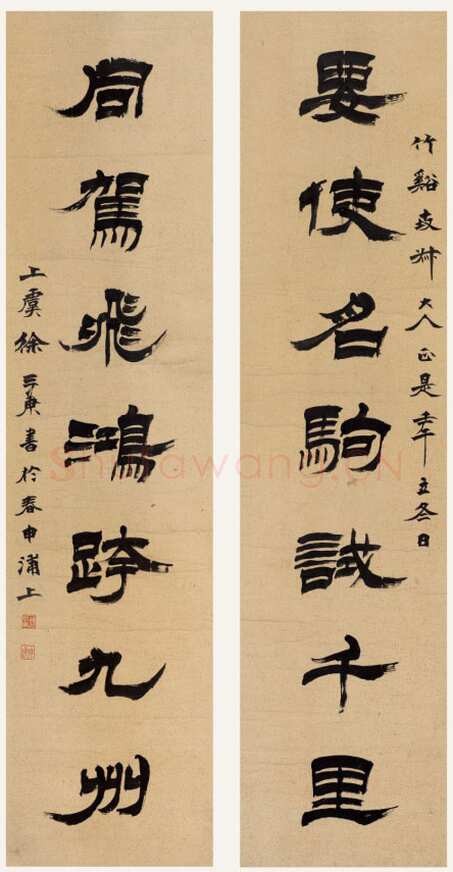 竹谿大人正是壬午立冬日
要使名駒試千里
同駕飛鴻跨九州
上虞徐三庚書於春申浦上
Shufawang.CN